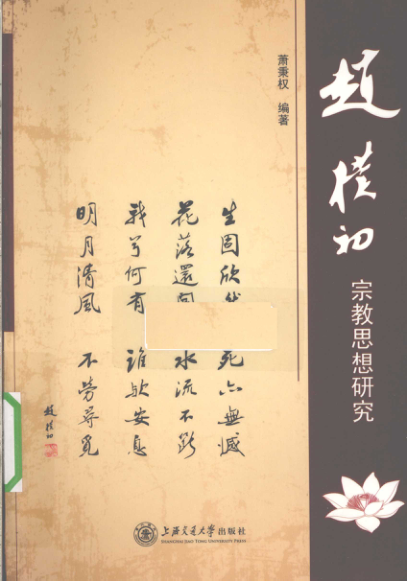 趙樸初
宗教思想研究
萧秉权 编著
生固欣 死亦無憾
花落還 水流不斷
我兮何有 誰歟安息
明月清風 不勞尋覓
趙樸初
上海交通大学出版社
SHANGHAI JIAO TONG UNIVERSITY PRESS